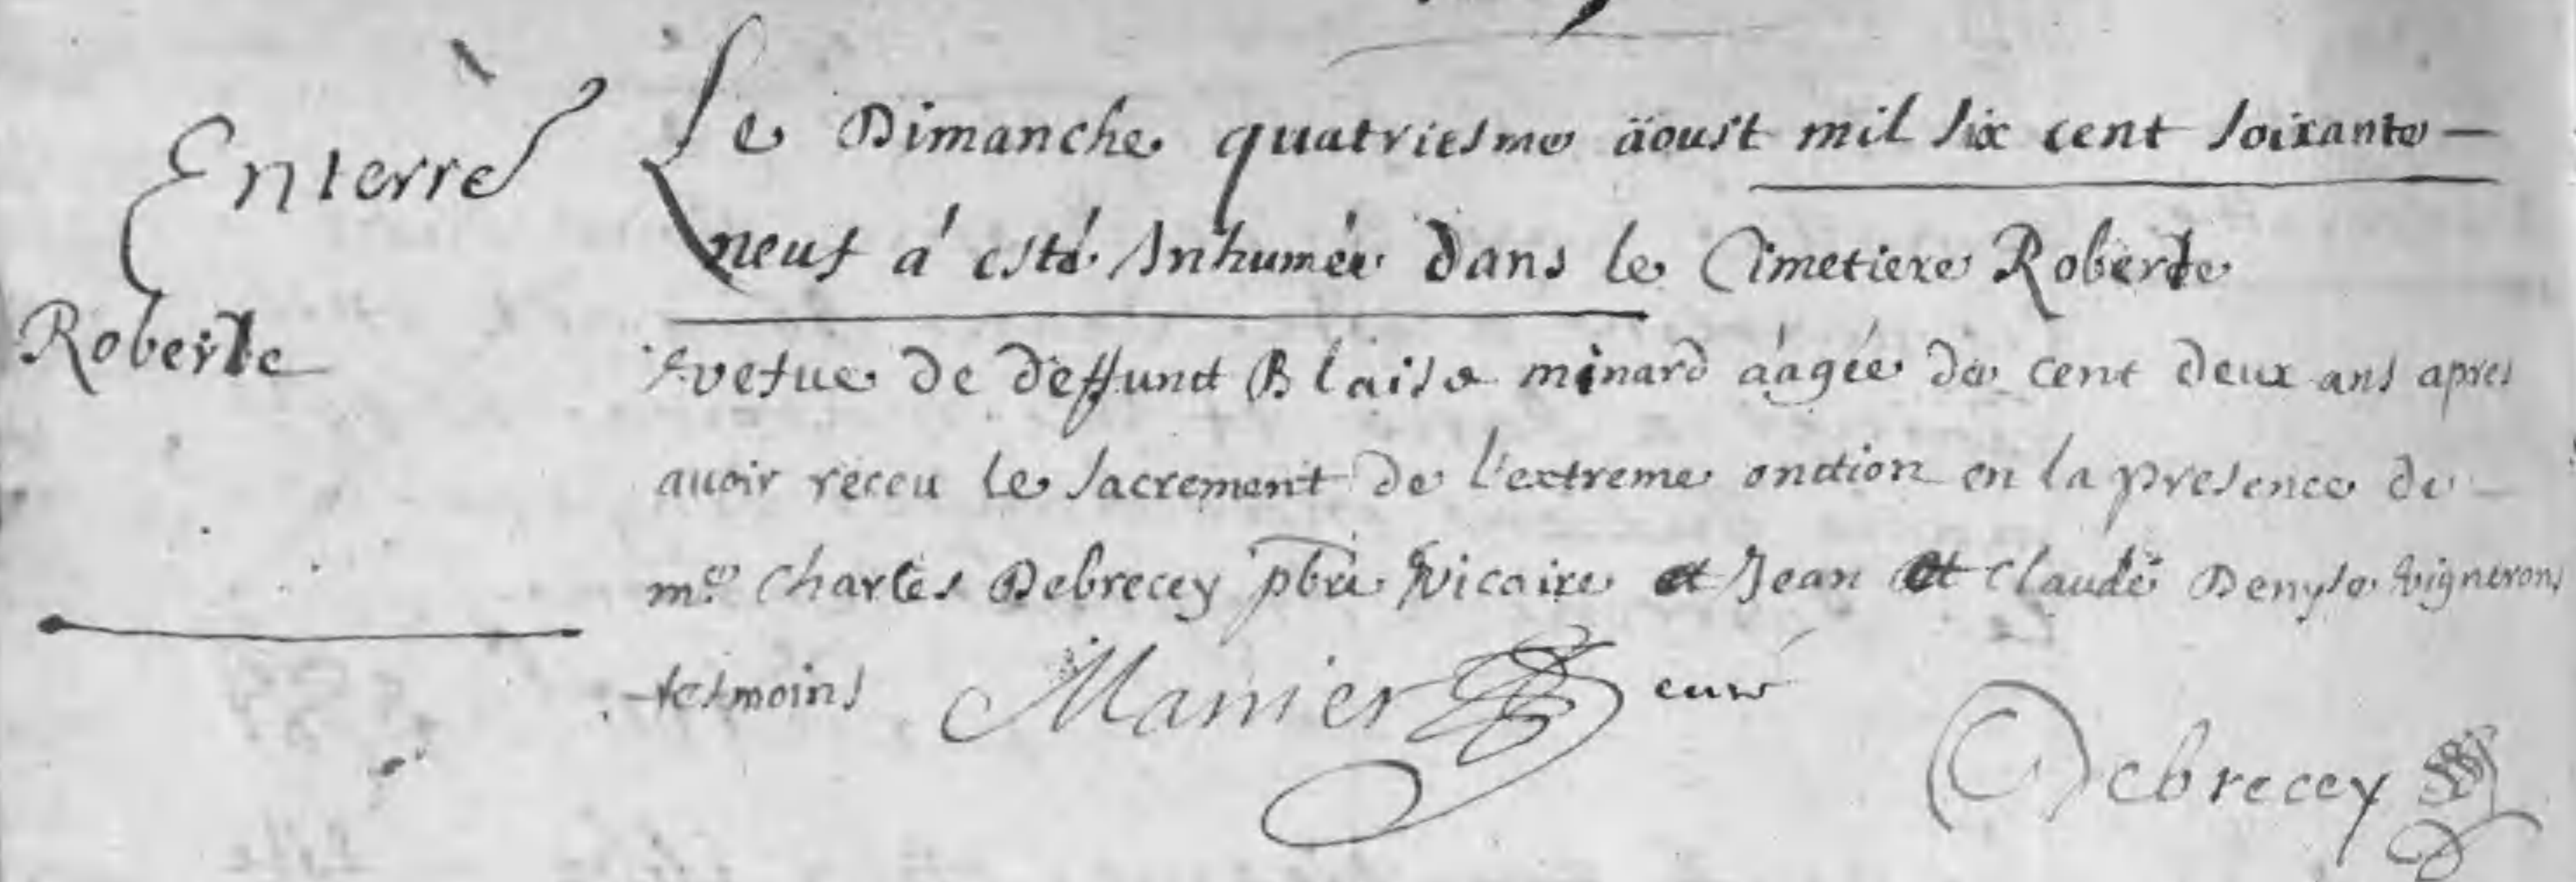 Enterré
Roberte
Le Dimanche quatriesme aoust mil six cent soixante —
neuf á esté Inhumée dans le Cimetiere Roberte
vefue de deffunct Blaise minard aágée de cent deux ans apres
auoir receu le sacrement de l'extreme onction en la presence de —
m.e Charles Debrecey pbre vicaire et Jean et Claude Denyse vignerons
tesmoins Manier curé
Debrecey